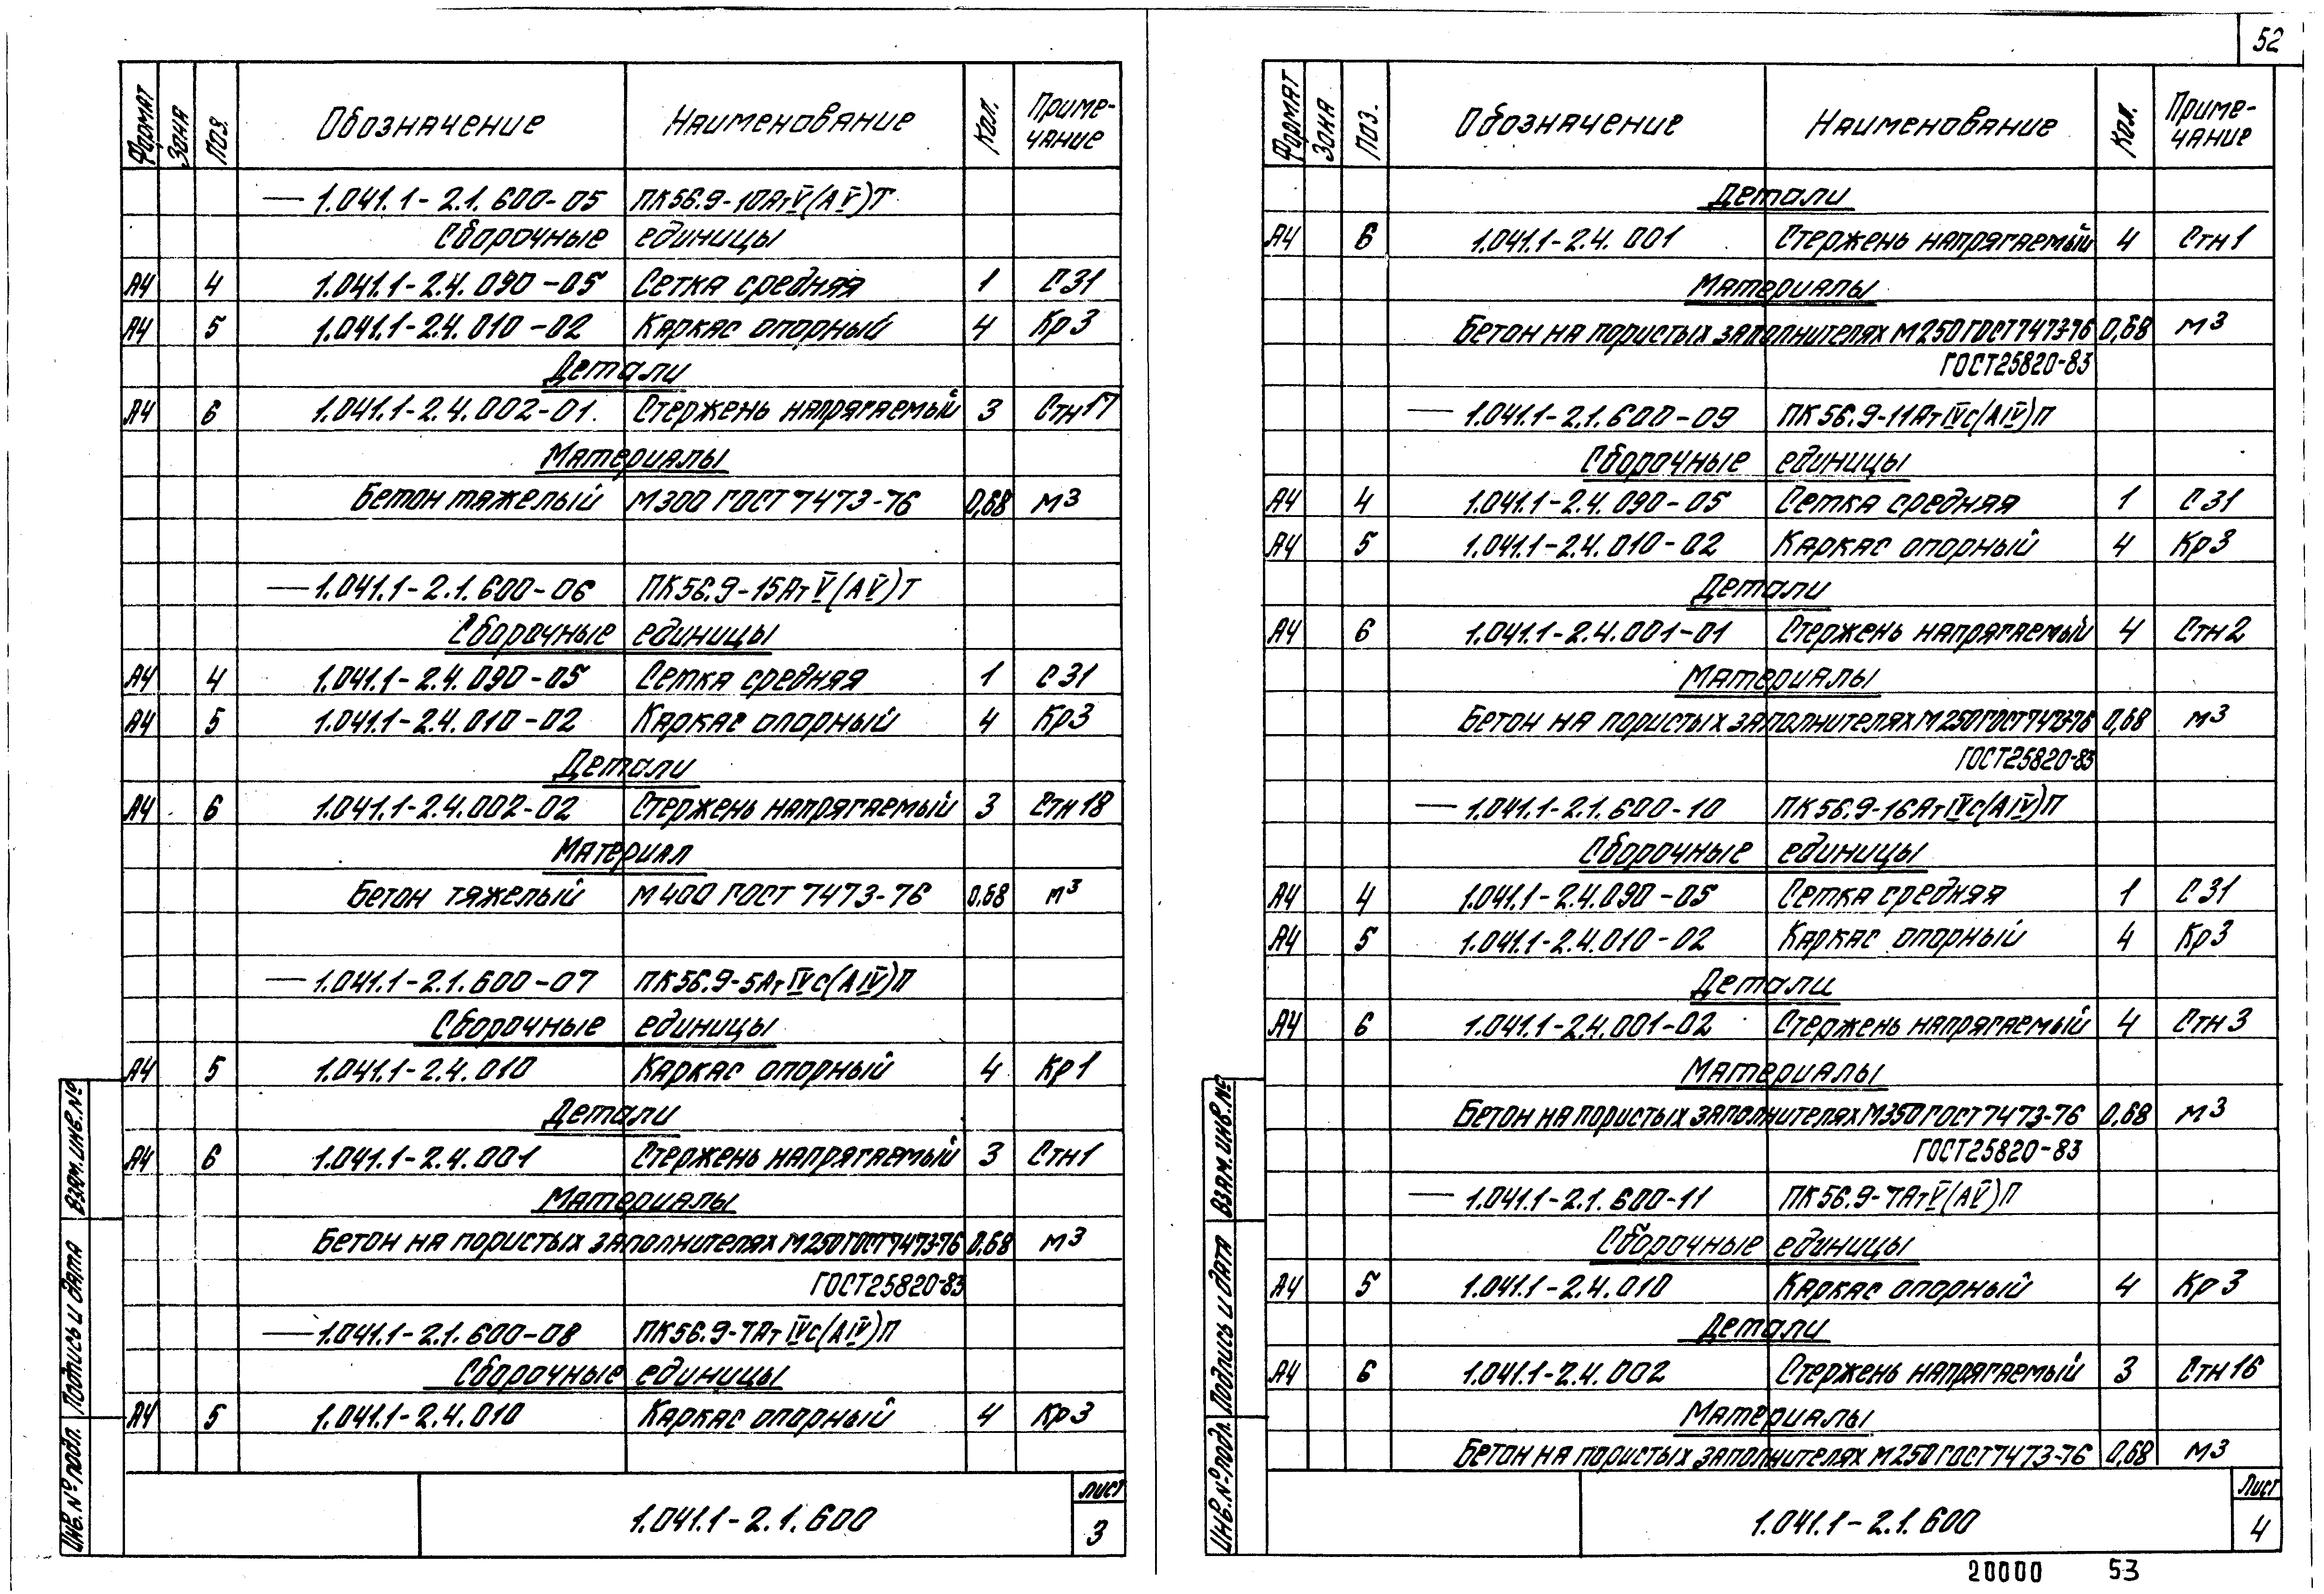 52
Формат Зона Поз. Обозначение Наименование Кол. Приме-
чание
— 1.041.1-2.1.600-05 ПК56.9-10АтV(АV)Т
Сборочные единицы
А4 4 1.041.1-2.4.090-05 Сетка средняя 1 С31
А4 5 1.041.1-2.4.010-02 Каркас опорный 4 Кр3
Детали
А4 6 1.041.1-2.4.002-01. Стержень напрягаемый 3 Стн17
Материалы
Бетон тяжелый М300 ГОСТ 7473-76 0,68 м3
— 1.041.1-2.1.600-06 ПК56.9-15АтV(АV)Т
Сборочные единицы
А4 4 1.041.1-2.4.090-05 Сетка средняя 1 С31
А4 5 1.041.1-2.4.010-02 Каркас опорный 4 Кр3
Детали
А4 6 1.041.1-2.4.002-02 Стержень напрягаемый 3 Стн18
Материал
Бетон тяжелый М400 ГОСТ 7473-76 0,68 м3
— 1.041.1-2.1.600-07 ПК56.9-5АтIVс(АIV)П
Сборочные единицы
А4 5 1.041.1-2.4.010 Каркас опорный 4 Кр1
Детали
А4 6 1.041.1-2.4.001 Стержень напрягаемый 3 Стн1
Материалы
Бетон на пористых заполнителях М250 ГОСТ 7473-76 0,68 м3
ГОСТ25820-83
— 1.041.1-2.1.600-08 ПК56.9-7АтIVс(АIV)П
Сборочные единицы
А4 5 1.041.1-2.4.010 Каркас опорный 4 Кр3
Инв.№ подл. Подпись и дата Взам.инв.№
1.041.1-2.1.600
Лист
3
Формат Зона Поз. Обозначение Наименование Кол. Приме-
чание
Детали
А4 6 1.041.1-2.4.001 Стержень напрягаемый 4 Стн1
Материалы
Бетон на пористых заполнителях М250 ГОСТ 7473-76 0,68 м3
ГОСТ25820-83
— 1.041.1-2.1.600-09 ПК56.9-11АтIVс(АIV)П
Сборочные единицы
А4 4 1.041.1-2.4.090-05 Сетка средняя 1 С31
А4 5 1.041.1-2.4.010-02 Каркас опорный 4 Кр3
Детали
А4 6 1.041.1-2.4.001-01 Стержень напрягаемый 4 Стн2
Материалы
Бетон на пористых заполнителях М250 ГОСТ 7473-76 0,68 м3
ГОСТ25820-83
— 1.041.1-2.1.600-10 ПК56.9-16АтIVс(АIV)П
Сборочные единицы
А4 4 1.041.1-2.4.090-05 Сетка средняя 1 С31
А4 5 1.041.1-2.4.010-02 Каркас опорный 4 Кр3
Детали
А4 6 1.041.1-2.4.001-02 Стержень напрягаемый 4 Стн3
Материалы
Бетон на пористых заполнителях М350 ГОСТ 7473-76 0,68 м3
ГОСТ25820-83
— 1.041.1-2.1.600-11 ПК56.9-7АтV(АV)П
Сборочные единицы
А4 5 1.041.1-2.4.010 Каркас опорный 4 Кр3
Детали
А4 6 1.041.1-2.4.002 Стержень напрягаемый 3 Стн16
Материалы
Бетон на пористых заполнителях М250 ГОСТ 7473-76 0,68 м3
Инв.№ подл. Подпись и дата Взам.инв.№
1.041.1-2.1.600
Лист
4
20000 53